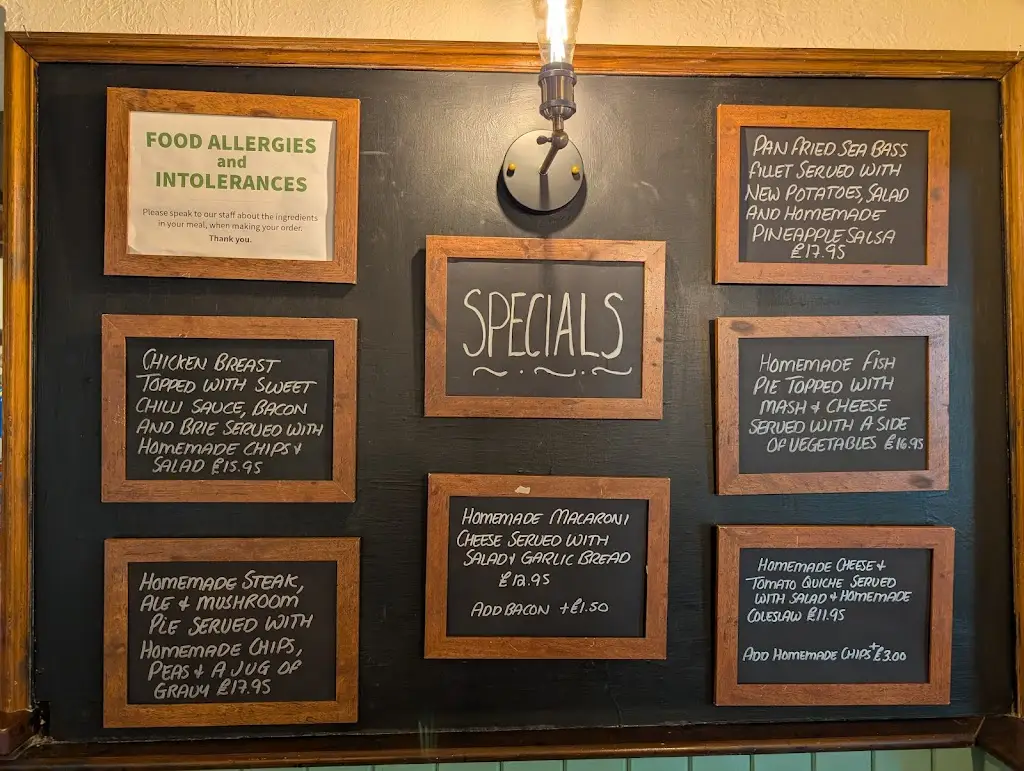 FOOD ALLERGIES
and
INTOLERANCES
Please speak to our staff about the ingredients
in your meal, when making your order.
Thank you.
CHICKEN BREAST
TOPPED WITH SWEET
CHILLI SAUCE, BACON
AND BRIE SERVED WITH
HOMEMADE CHIPS +
SALAD £15.95
HOMEMADE STEAK,
ALE + MUSHROOM
PIE SERVED WITH
HOMEMADE CHIPS,
PEAS + A JUG OF
GRAVY £17.95
SPECIALS
HOMEMADE MACARONI
CHEESE SERVED WITH
SALAD + GARLIC BREAD
£12.95
ADD BACON +£1.50
PAN FRIED SEA BASS
FILLET SERVED WITH
NEW POTATOES, SALAD
AND HOMEMADE
PINEAPPLE SALSA
£17.95
HOMEMADE FISH
PIE TOPPED WITH
MASH + CHEESE
SERVED WITH A SIDE
OF VEGETABLES £16.95
HOMEMADE CHEESE +
TOMATO QUICHE SERVED
WITH SALAD + HOMEMADE
COLESLAW £11.95
ADD HOMEMADE CHIPS +£3.00